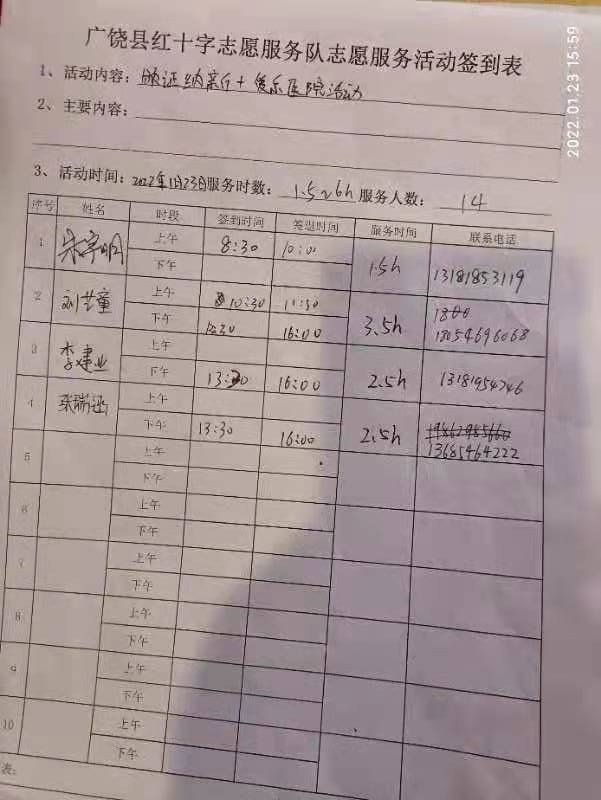 2022.01.23 15:59
广饶县红十字志愿服务队志愿服务活动签到表
1、活动内容：颁证纳新厅+爱乐医院活动
2、主要内容：
3、活动时间：2022年1月23日服务时数：1.5~6h服务人数：14
序号 姓名 时段 签到时间 签退时间 服务时间 联系电话
1 宋宇明 上午 8:30 10:00 1.5h 13181853119
下午
2 刘艺童 上午 10:30 11:30 3.5h 1800
下午 13:30 16:00 18054696068
3 李建业 上午
下午 13:30 16:00 2.5h 13181954746
4 张瑞涵 上午
下午 13:30 16:00 2.5h 19862985660
13685464222
5 上午
下午
6 上午
下午
7 上午
下午
8 上午
下午
9 上午
下午
10 上午
下午
表：